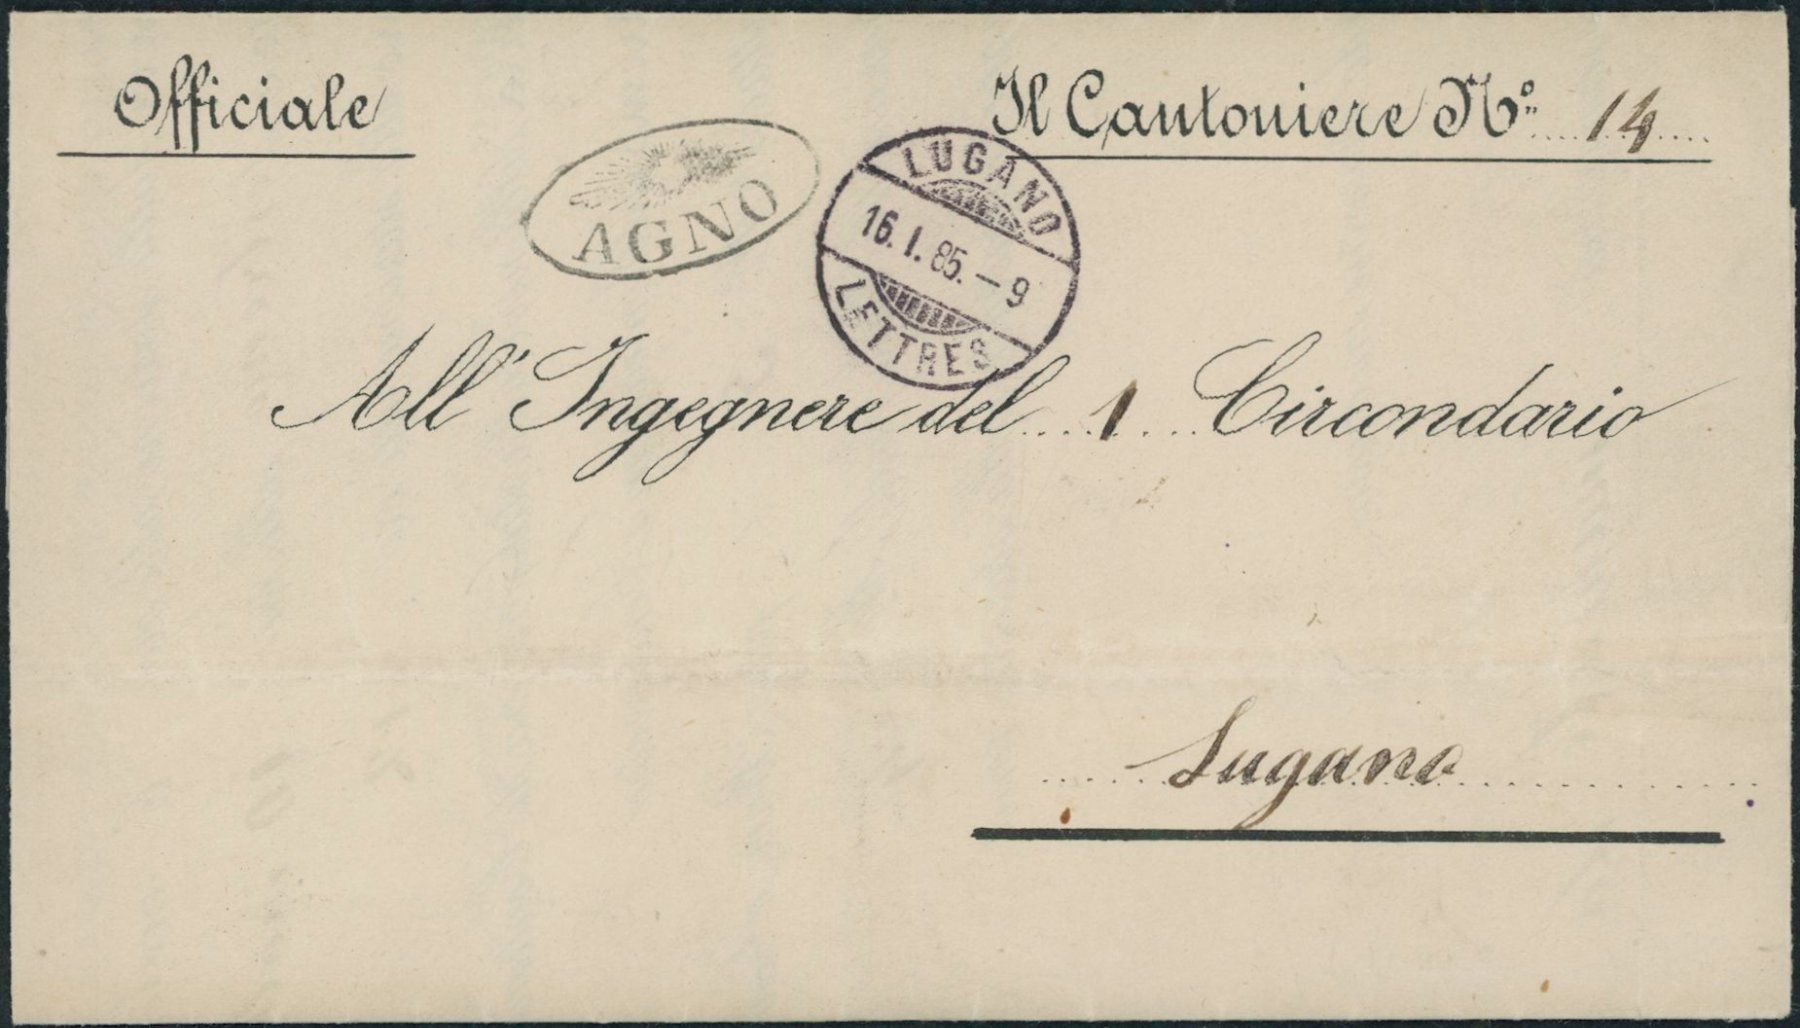 Officiale
Il Cantoniere No. 14
AGNO
LUGANO
16. I. 85. – 9
LETTRES
All' Ingegnere del 1 Circondario
Lugano